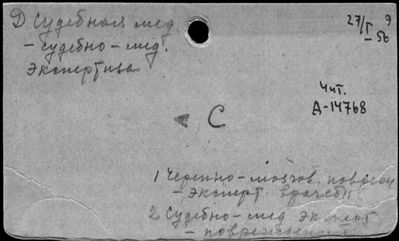 D Судебная мед.
- судебно-мед.
экспертиза
27/I 9
- 56
Чит.
А-14768
С
1 Черепно-мозгов. поврежд
- эксперт. врачебн
2 Судебно-мед. эксперт.
- повреждения